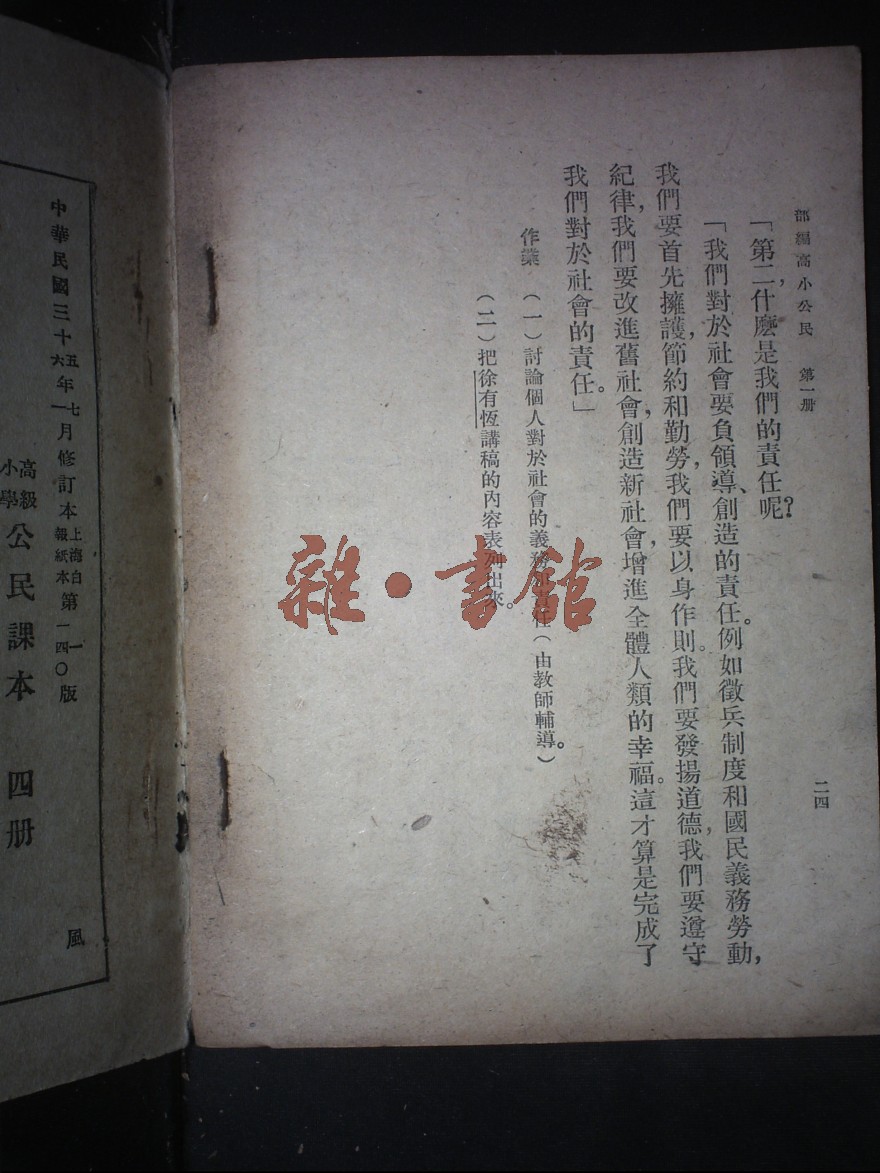 部編高小公民　第一册
二四
「第二，什麼是我們的責任呢？
「我們對於社會要負領導、創造的責任。例如徵兵制度和國民義務勞動，
我們要首先擁護，節約和勤勞，我們要以身作則。我們要發揚道德，我們要遵守
紀律，我們要改進舊社會，創造新社會，增進全體人類的幸福。這才算是完成了
我們對於社會的責任。」
作業　（一）討論個人對於社會的義務和責任（由教師輔導。）
（二）把徐有恆講稿的內容表列出來。
雜・書館
中華民國三十五年七月修訂本上海白報紙本第一一版
六 一 四〇
高級小學公民課本　四册
風